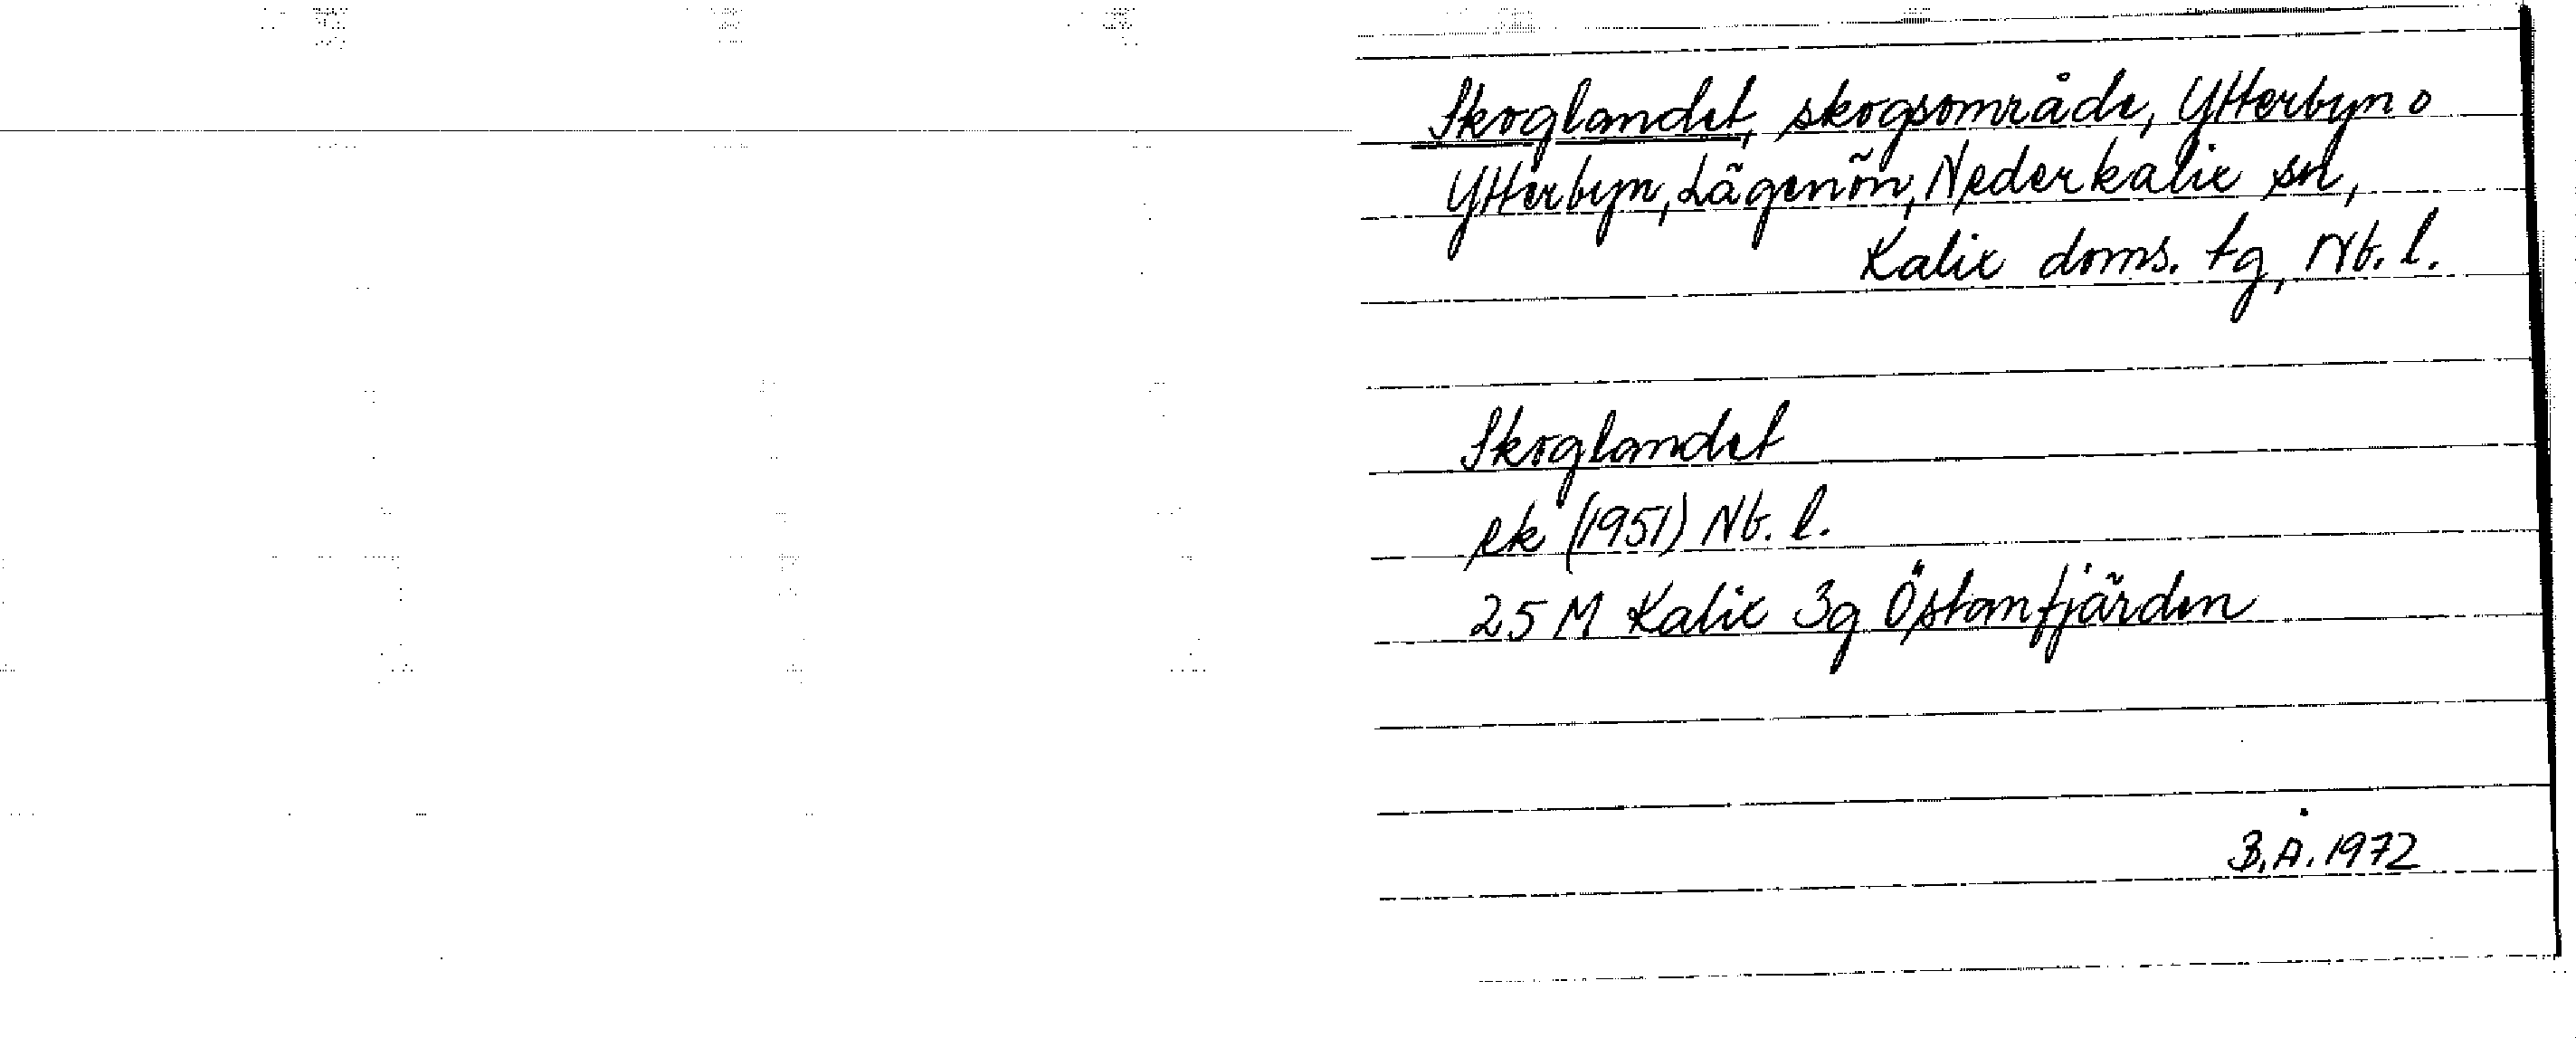 Skoglandet, skogsområde, Ytterbyn o
Ytterbyn, Lägenön, Nederkalix sn,
Kalix doms. tg, Nb. l.
Skoglandet
ek (1951) Nb. l.
25 M Kalix 3g Östanfjärden
B.Å. 1972